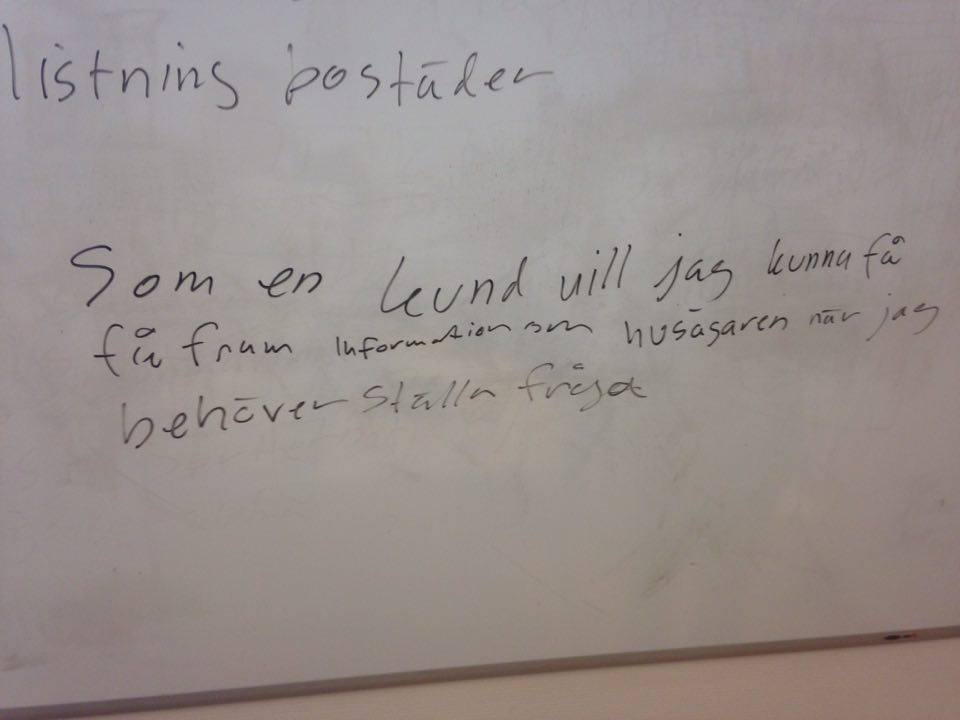 listning bostäder
Som en kund vill jag kunna få
få fram information om husägaren när jag
behöver ställa frågot